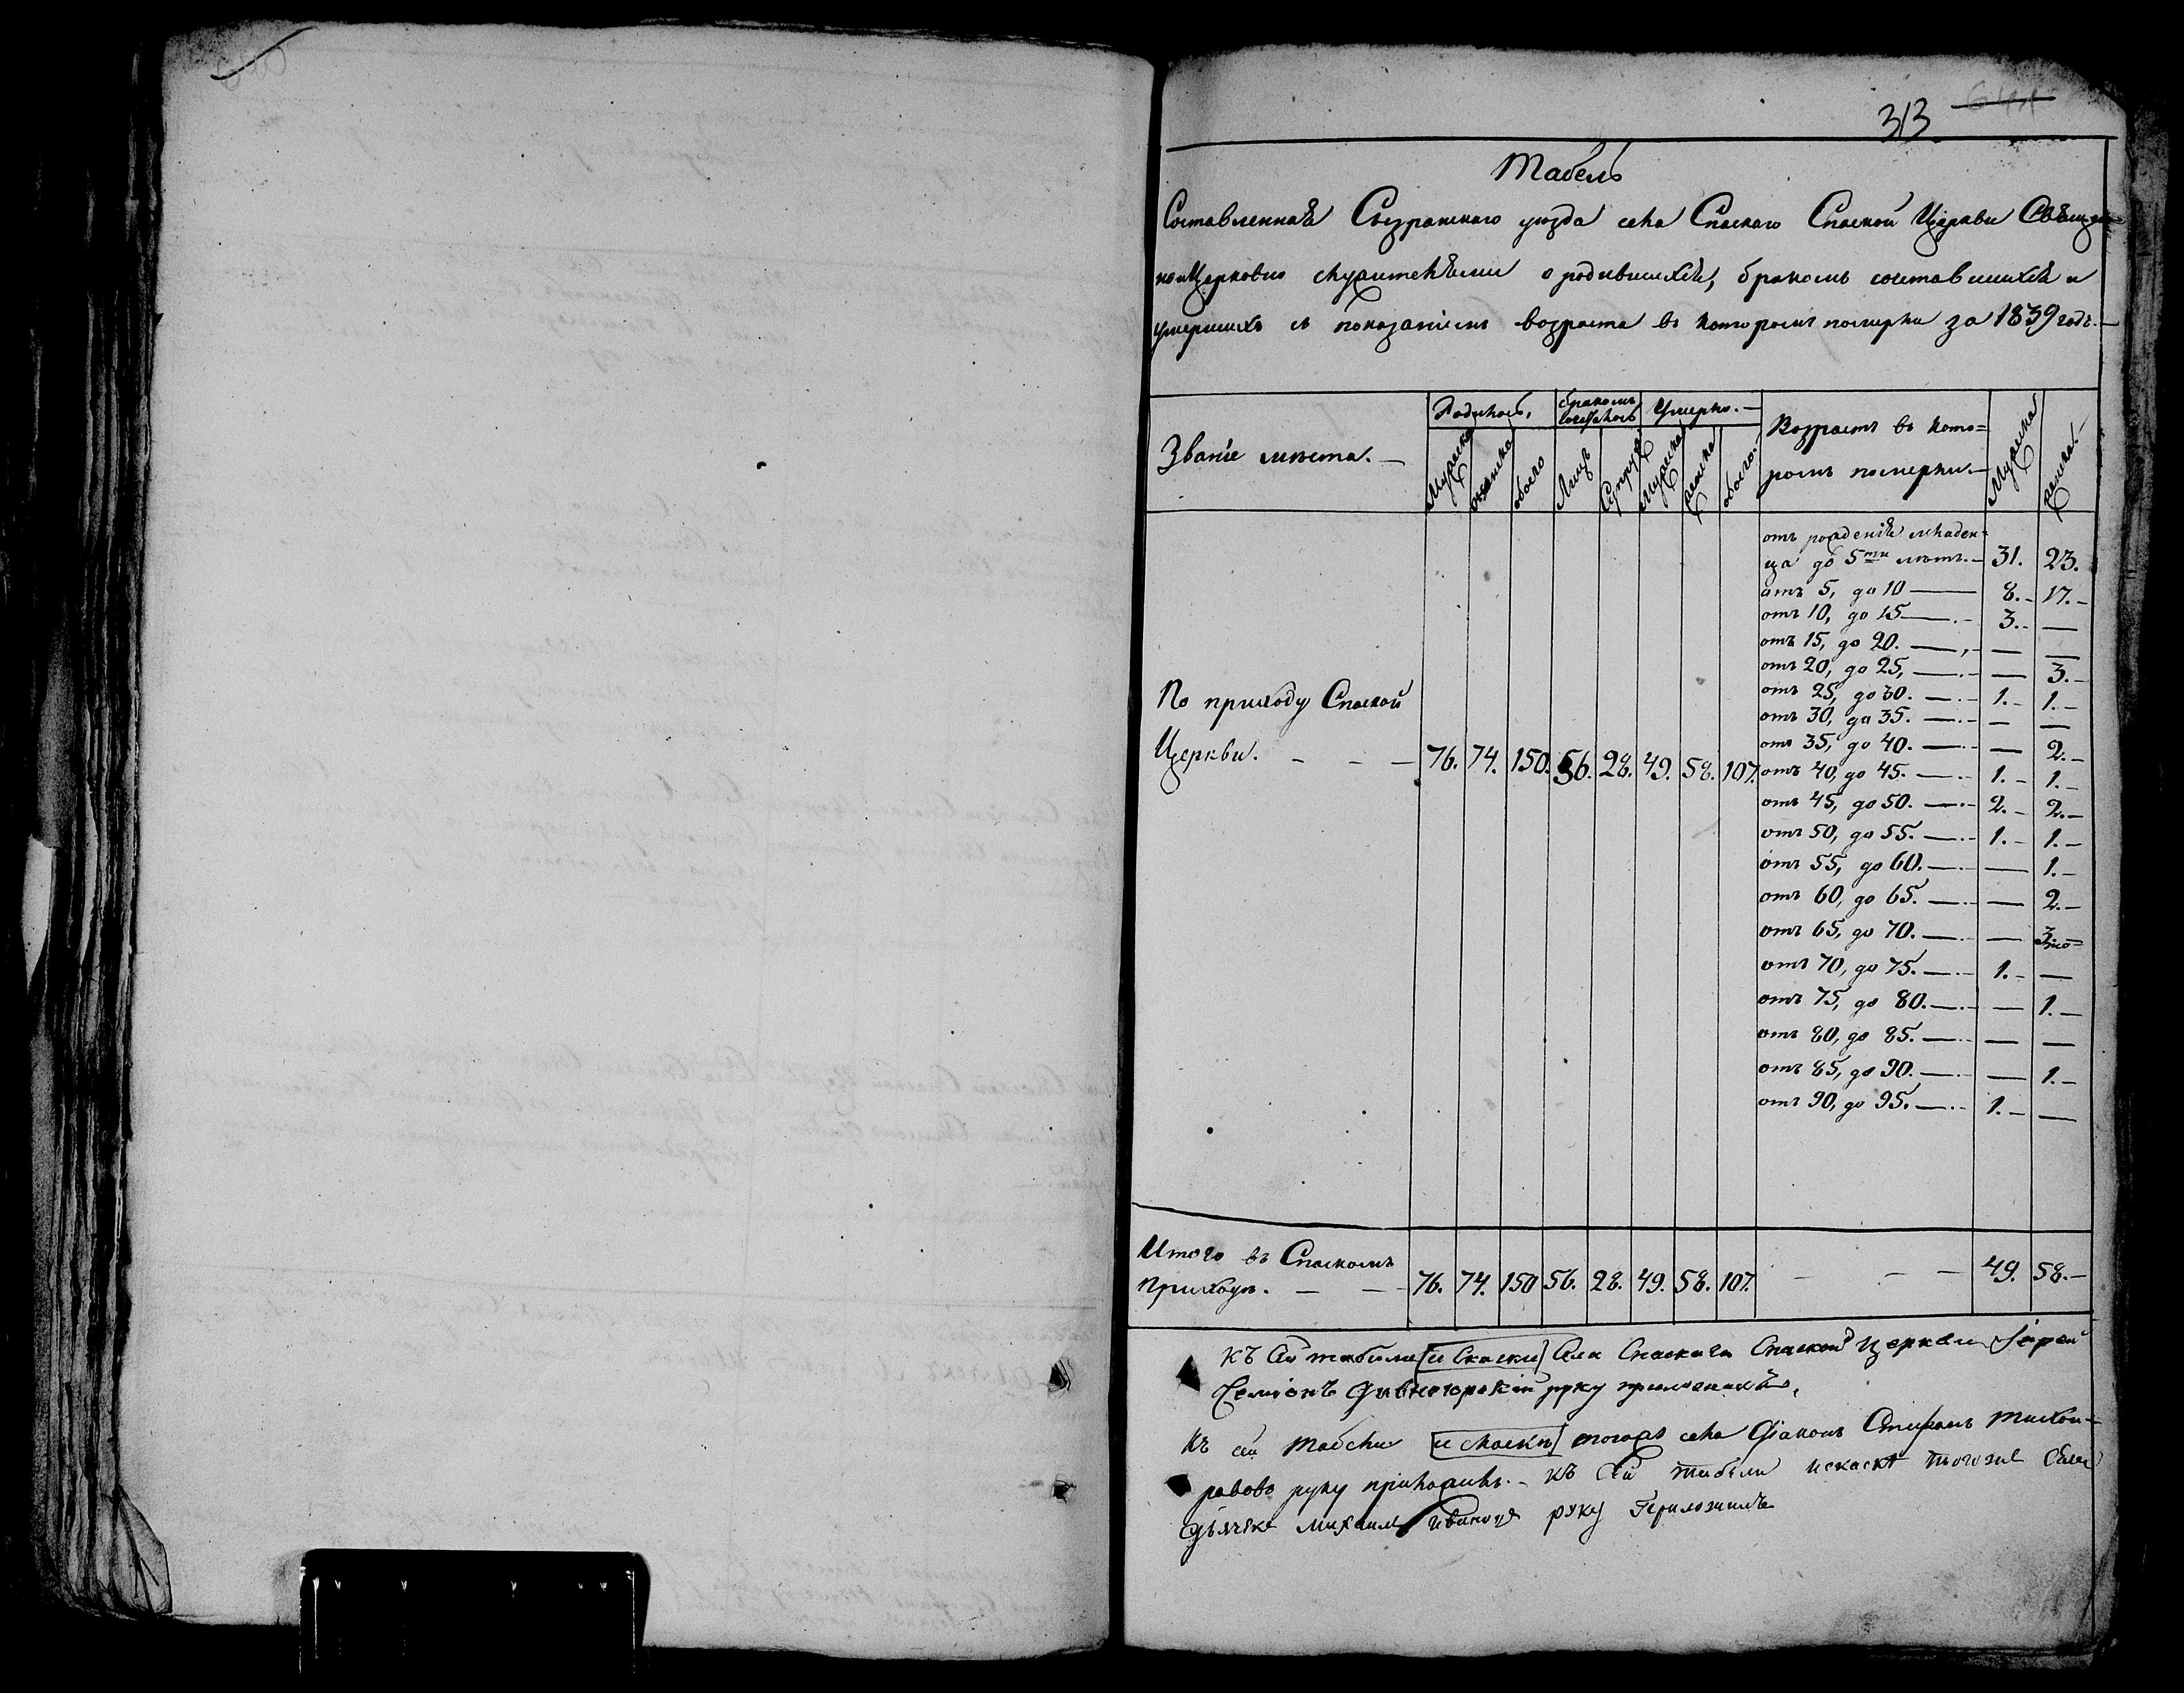 313 641
Табель
Составленная Сызранскаго уѣзда села Спаскаго Спаской Церкви Священ=
ноцерковно служителями о родившихся, бракомъ сочетавшихся и
умершихъ съ показаніемъ возраста въ которомъ померли за 1839 годъ.
Званіе мѣста. Родилось. бракомъ сочеталось Умерло. Возрастъ въ кото= Мужеска женска.
Мужеска женска обоего Лицъ Супруж. Мужеска женска обоего. ромъ померли.
отъ рожденія младен=
ца до 5ти лѣтъ. 31. 23.
отъ 5, до 10 8. 17.
отъ 10, до 15 3. —
отъ 15, до 20. — —
отъ 20, до 25, — 3.
отъ 25, до 30. 1. 1.
отъ 30, до 35. — —
отъ 35, до 40. — 2.
По приходу Спаской
Церкви. 76. 74. 150. 56. 28. 49. 58. 107. отъ 40, до 45. 1. 1.
отъ 45, до 50. 2. 2.
отъ 50, до 55. 1. 1.
отъ 55, до 60. — 1.
отъ 60, до 65. — 2.
отъ 65, до 70. — 3.
отъ 70, до 75. 1. —
отъ 75, до 80. — 1.
отъ 80, до 85. — —
отъ 85, до 90. — 1.
отъ 90, до 95. 1. —
Итого въ Спаскомъ
приходѣ. 76. 74. 150 56. 28. 49. 58. 107. 49. 58.
Къ сей табели [и Скаски] Села Спаскаго Спаской церкви Іерей
Семіонъ Дивногорскій руку приложилъ,
Къ сей табели [и скаски] тогожъ села Діаконъ Стефанъ
руку приложилъ. Къ Сей табели искаски тогоже Села
дьячекъ Михаилъ Ивановъ руку Приложилъ